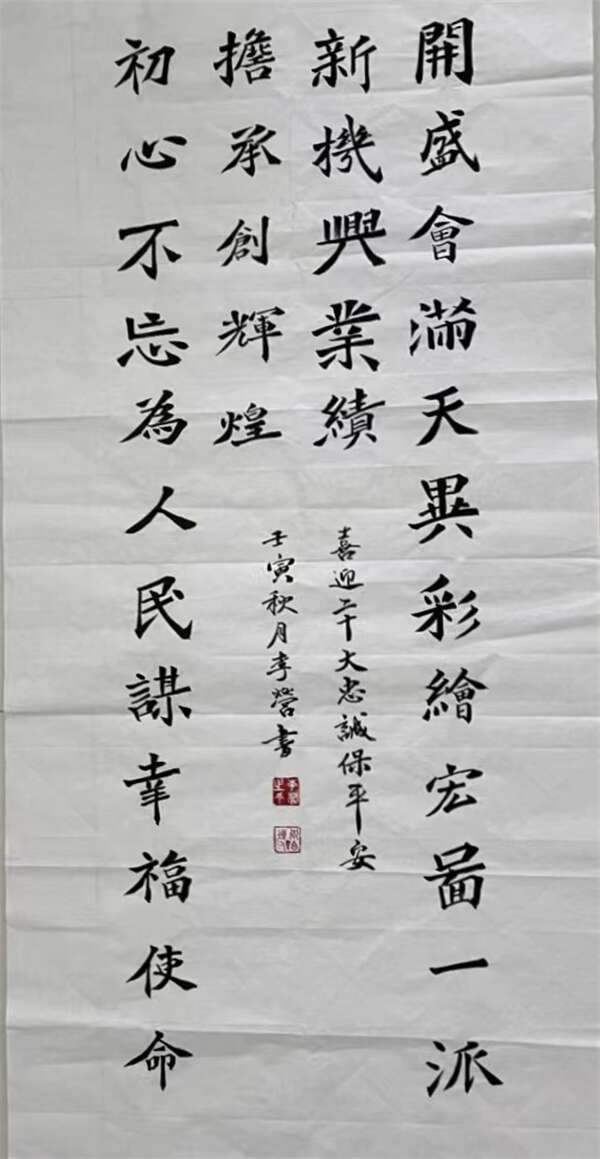 開盛會滿天異彩繪宏啚一派
新機興業績
喜迎二十大忠誠保平安
初心不忘為人民謀幸福使命
擔承創輝煌
壬寅秋月李營書